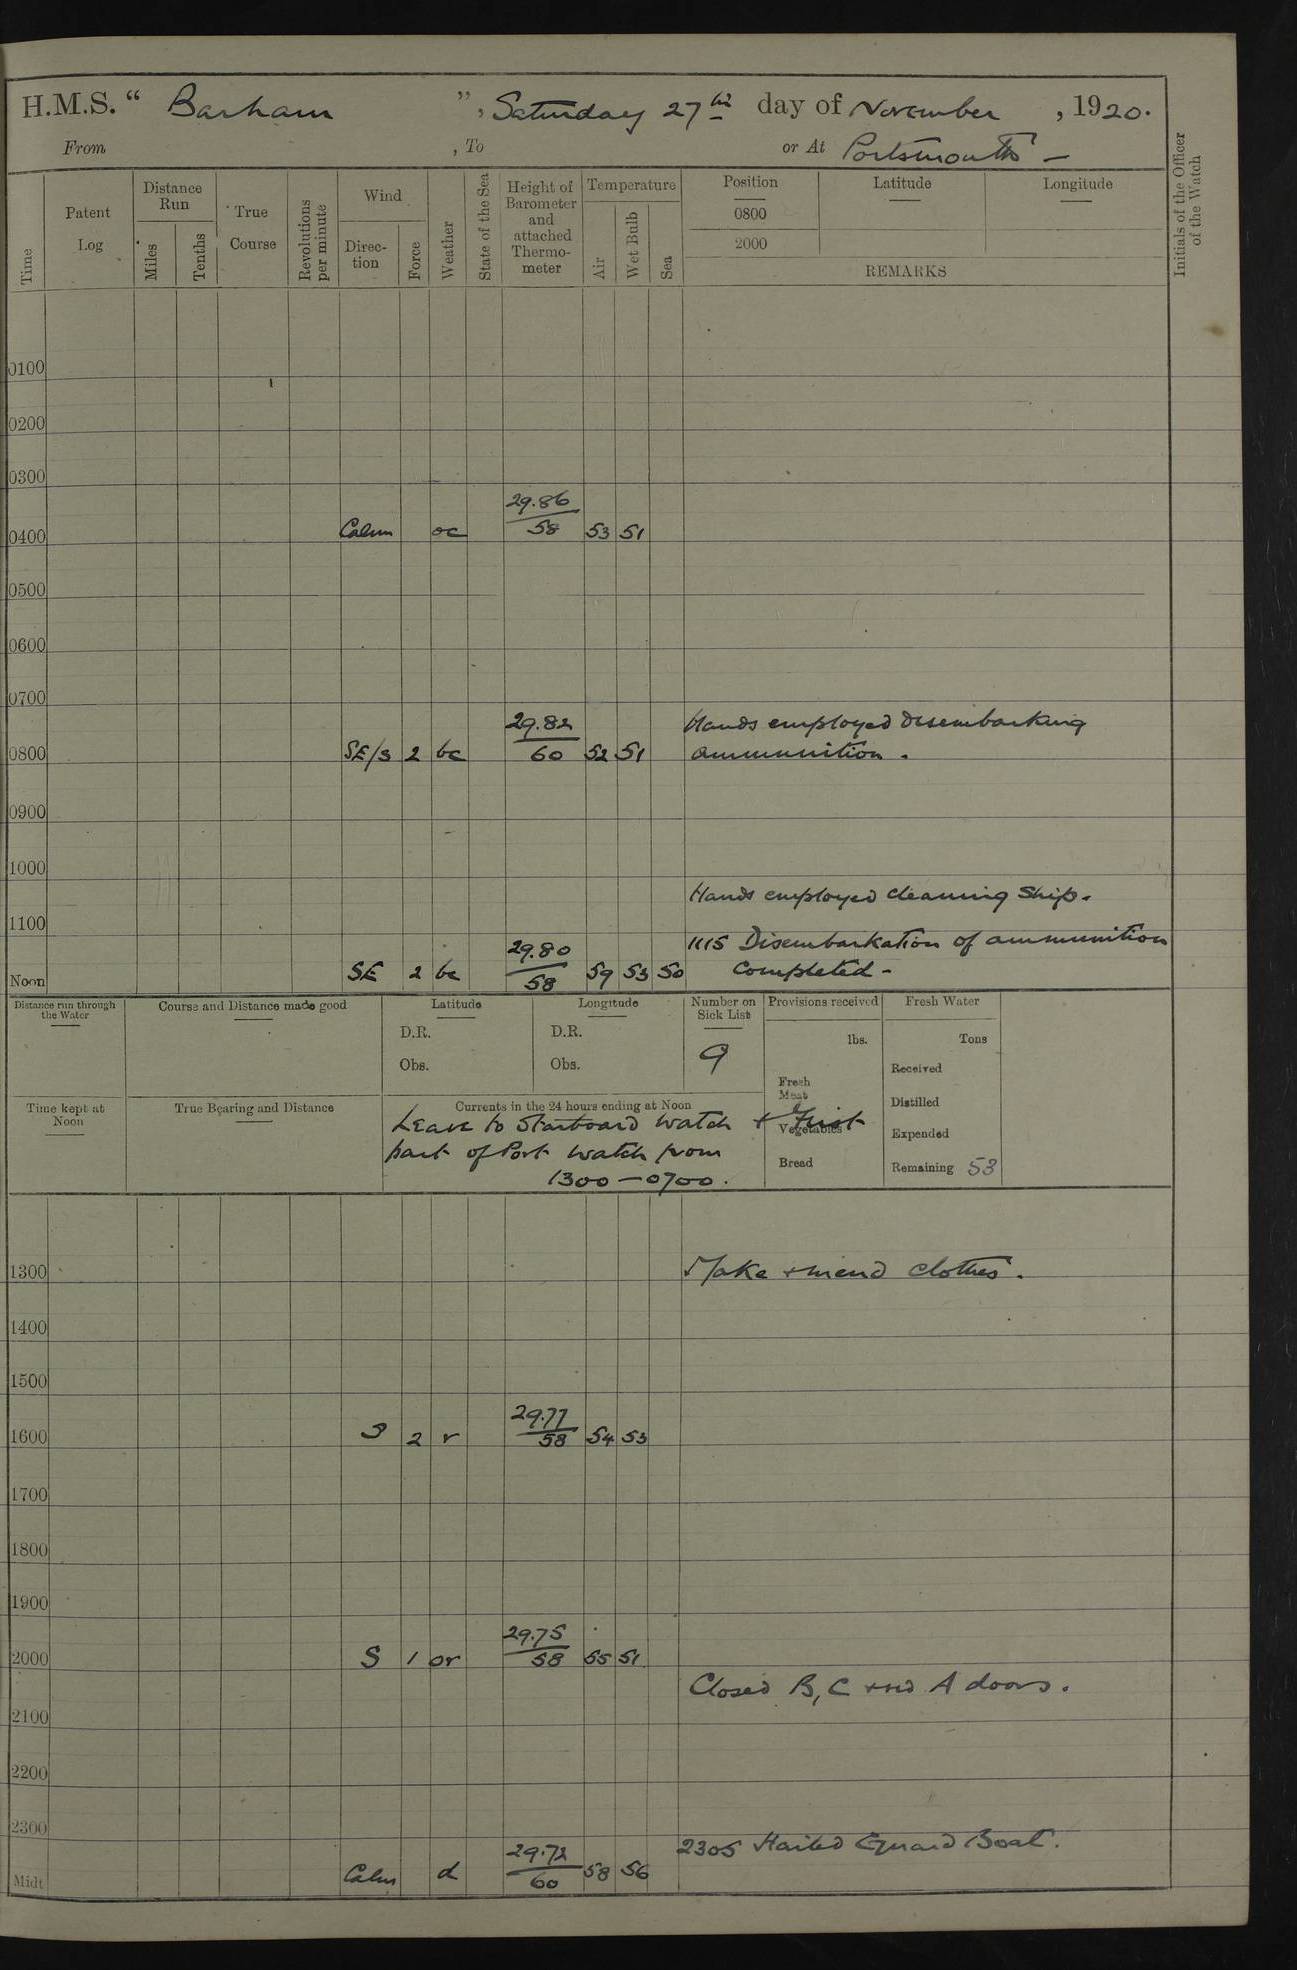 H.M.S. “ Barham ”, Saturday 27th day of November , 1920.
From , To or At Portsmouth –
Initials of the Officer of the Watch
Time
Patent Log
Distance Run
Miles
Tenths
True Course
Revolutions per minute
Wind
Direc-tion
Force
Weather
State of the Sea
Height of Barometer and attached Thermo-meter
Temperature
Air
Wet Bulb
Sea
Position Latitude Longitude
0800
2000
REMARKS
0100
0200
0300
29.86
0400 Calm oc 58 53 51
0500
0600
0700
29.82 Hands employed disembarking
0800 SE/S 2 bc 60 52 51 ammunition .
0900
1000
Hands employed cleaning Ship.
1100
29.80 1115 Disembarkation of ammunition
Noon SE 2 bc 58 59 53 50 Completed –
Distance run through the Water
Course and Distance made good
Latitude
D.R.
Obs.
Longitude
D.R.
Obs.
Number on Sick List
9
Provisions received
lbs.
Fresh Meat
Vegetables
Bread
Fresh Water
Tons
Received
Distilled
Expended
Remaining 53
Time kept at Noon
True Bearing and Distance
Currents in the 24 hours ending at Noon
Leave to Starboard Watch & First
part of Port Watch from
1300 – 0700 .
1300 Make & mend clothes .
1400
1500
29.77
1600 S 2 r 58 54 53
1700
1800
1900
29.75
2000 S 1 or 58 55 51
Closed B, C and A doors .
2100
2200
2300
29.72 2305 Hailed Guard Boat .
Midt Calm d 60 58 56